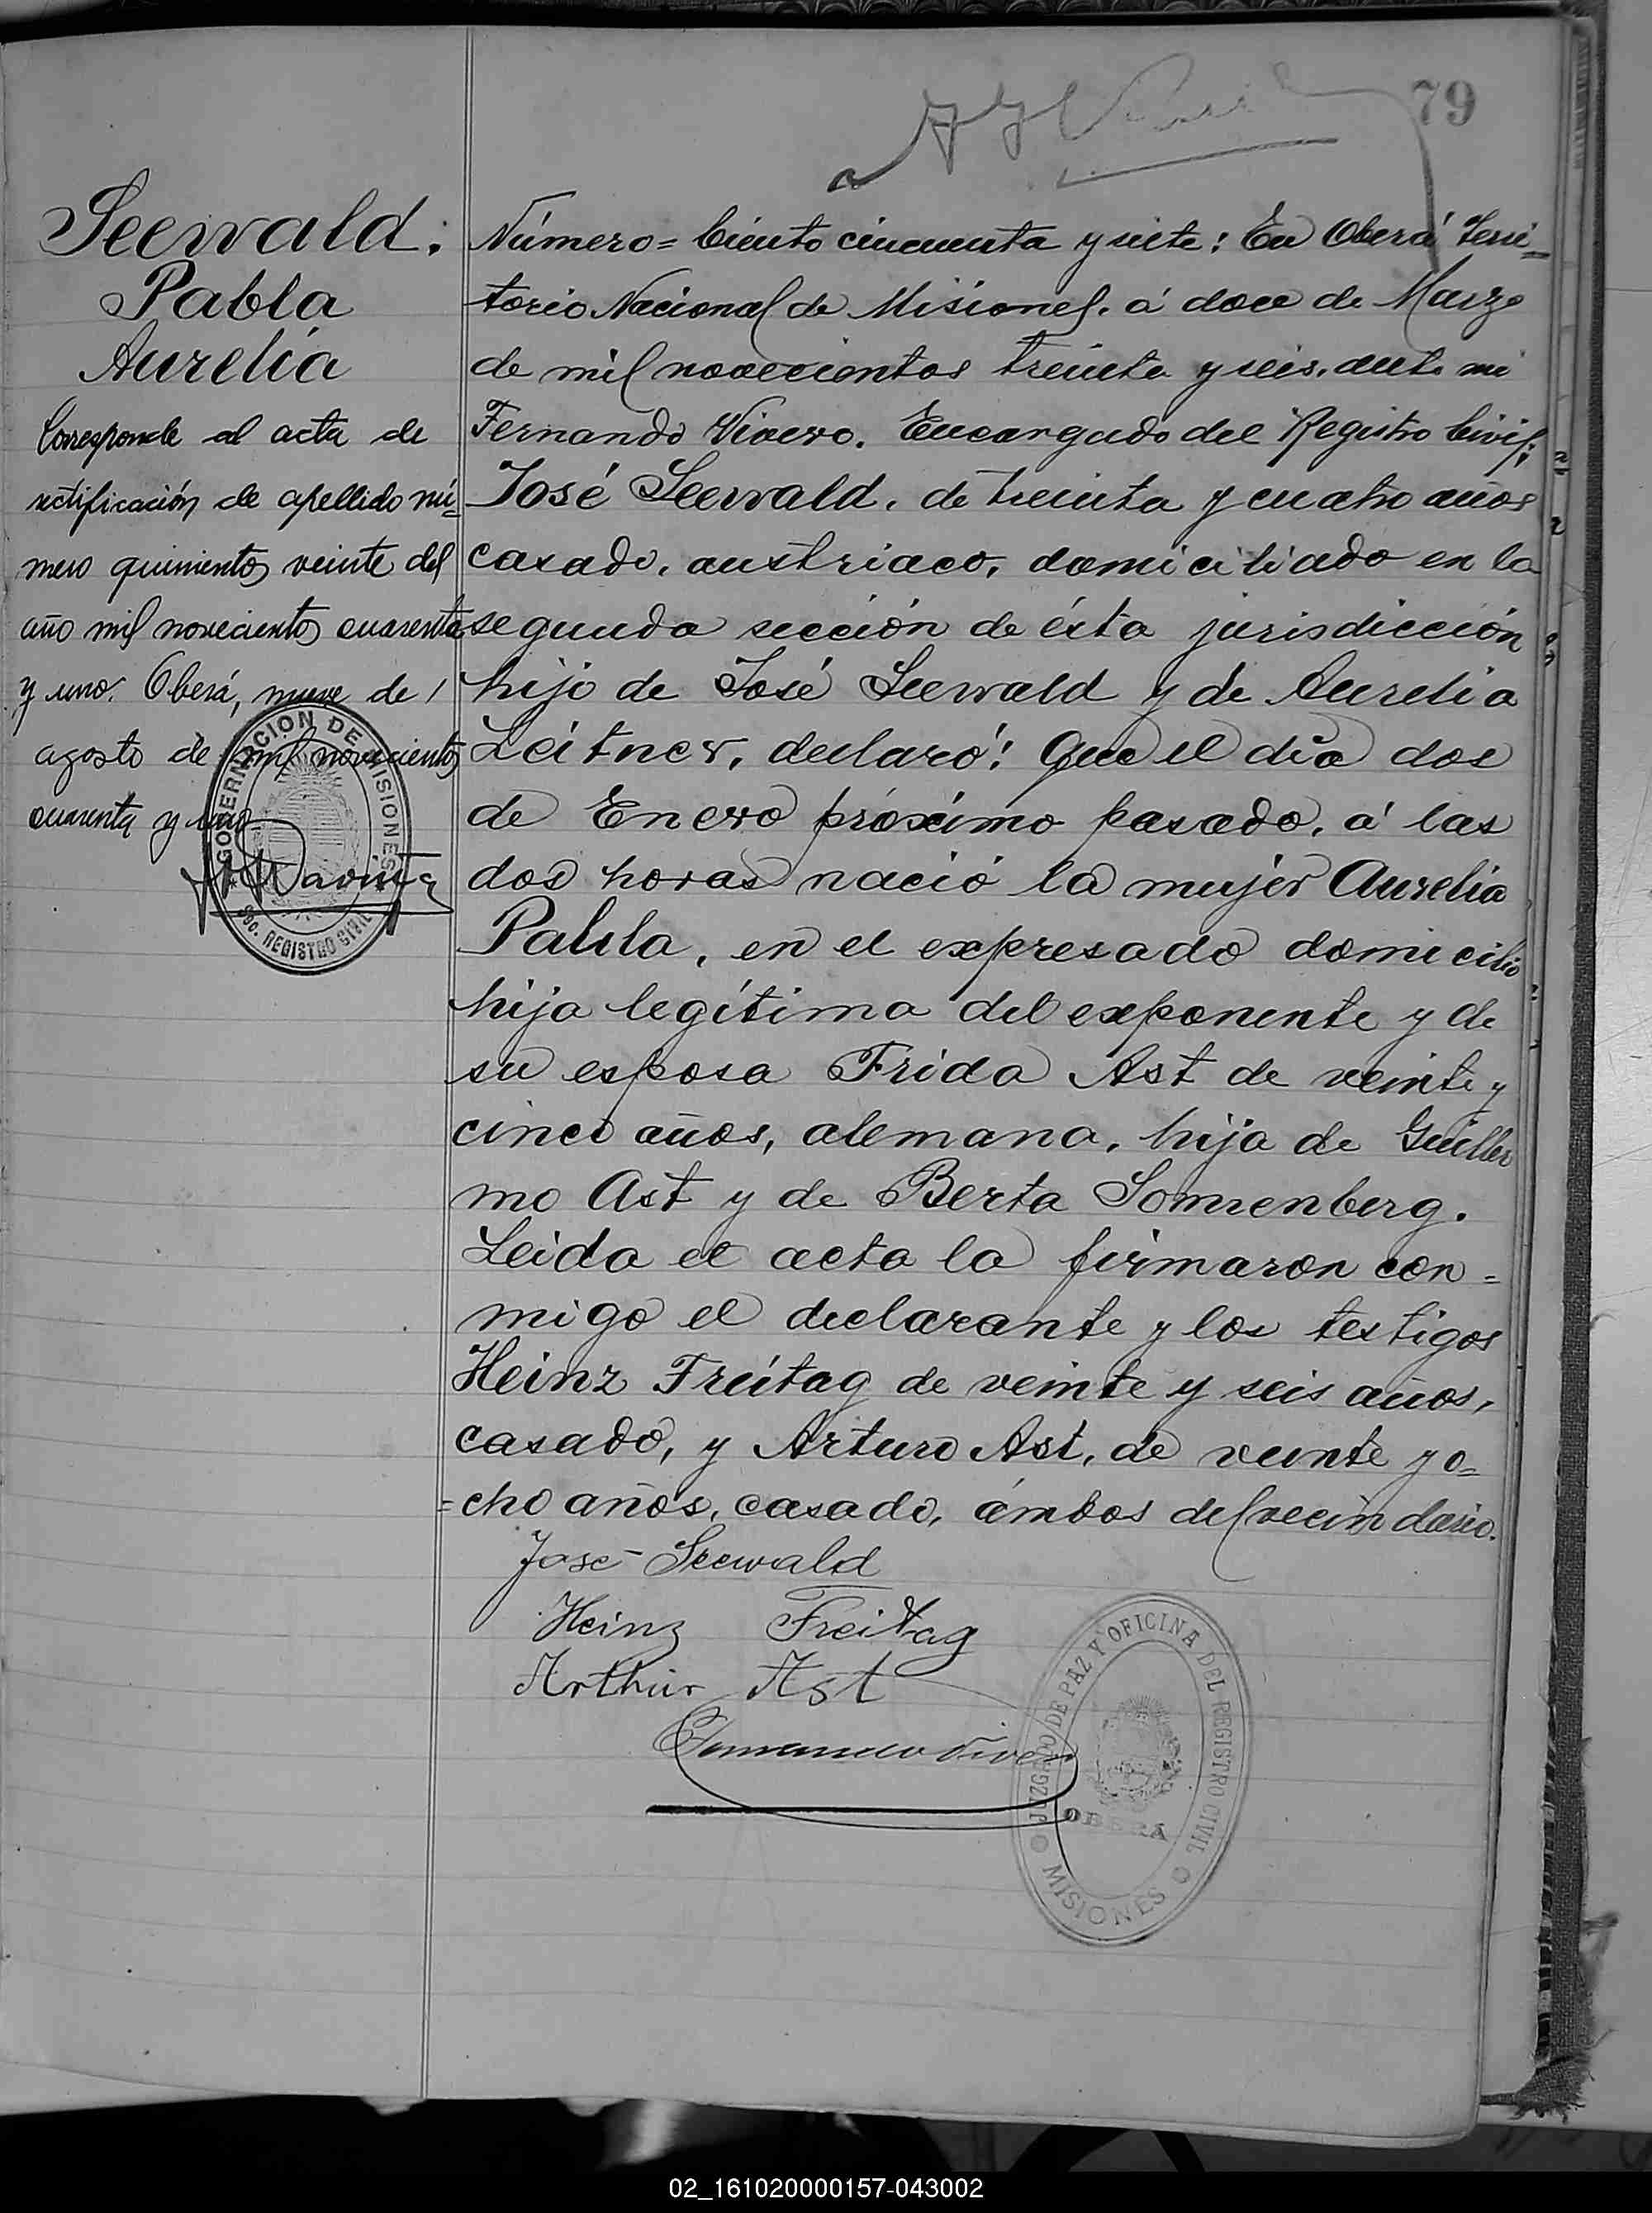 79
Seewald.
Pabla
Aurelia
Corresponde al acta de
rectificación de apellido nú=
mero quinientos veinte del
año mil novecientos cuarenta
y uno. Oberá, nueve de
agosto de mil novecientos
cuarenta y uno
GOBERNACION DE MISIONES
REGISTRO CIVIL
Número= Ciento cincuenta y siete: En Oberá Terri=
torio Nacional de Misiones. á doce de Marzo
de mil novecientos treinta y seis. ante mi
Fernando Vivero. Encargado del Registro Civil;
José Seewald. de treinta y cuatro años
casado. austriaco. domiciliado en la
segunda sección de ésta jurisdicción
hijo de José Seewald y de Aurelia
Leitner. declaró: Que el día dos
de Enero próximo pasado. á las
dos horas nació la mujer Aurelia
Pabla, en el expresado domicilio
hija legítima del exponente y de
su esposa Frida Ast de veinte y
cinco años, alemana. hija de Guiller
mo Ast y de Berta Sonnenberg.
Leida el acta la firmaron con=
migo el declarante y los testigos
Heinz Freitag de veinte y seis años,
casado, y Arturo Ast. de veinte y o=
=cho años. casado. ámbos del vecindario.
José Seewald
Heinz Freitag
Arthur Ast
Fernando Vivero
JUZGADO DE PAZ Y OFICINA DEL REGISTRO CIVIL
OBERÁ
MISIONES
02_161020000157-043002